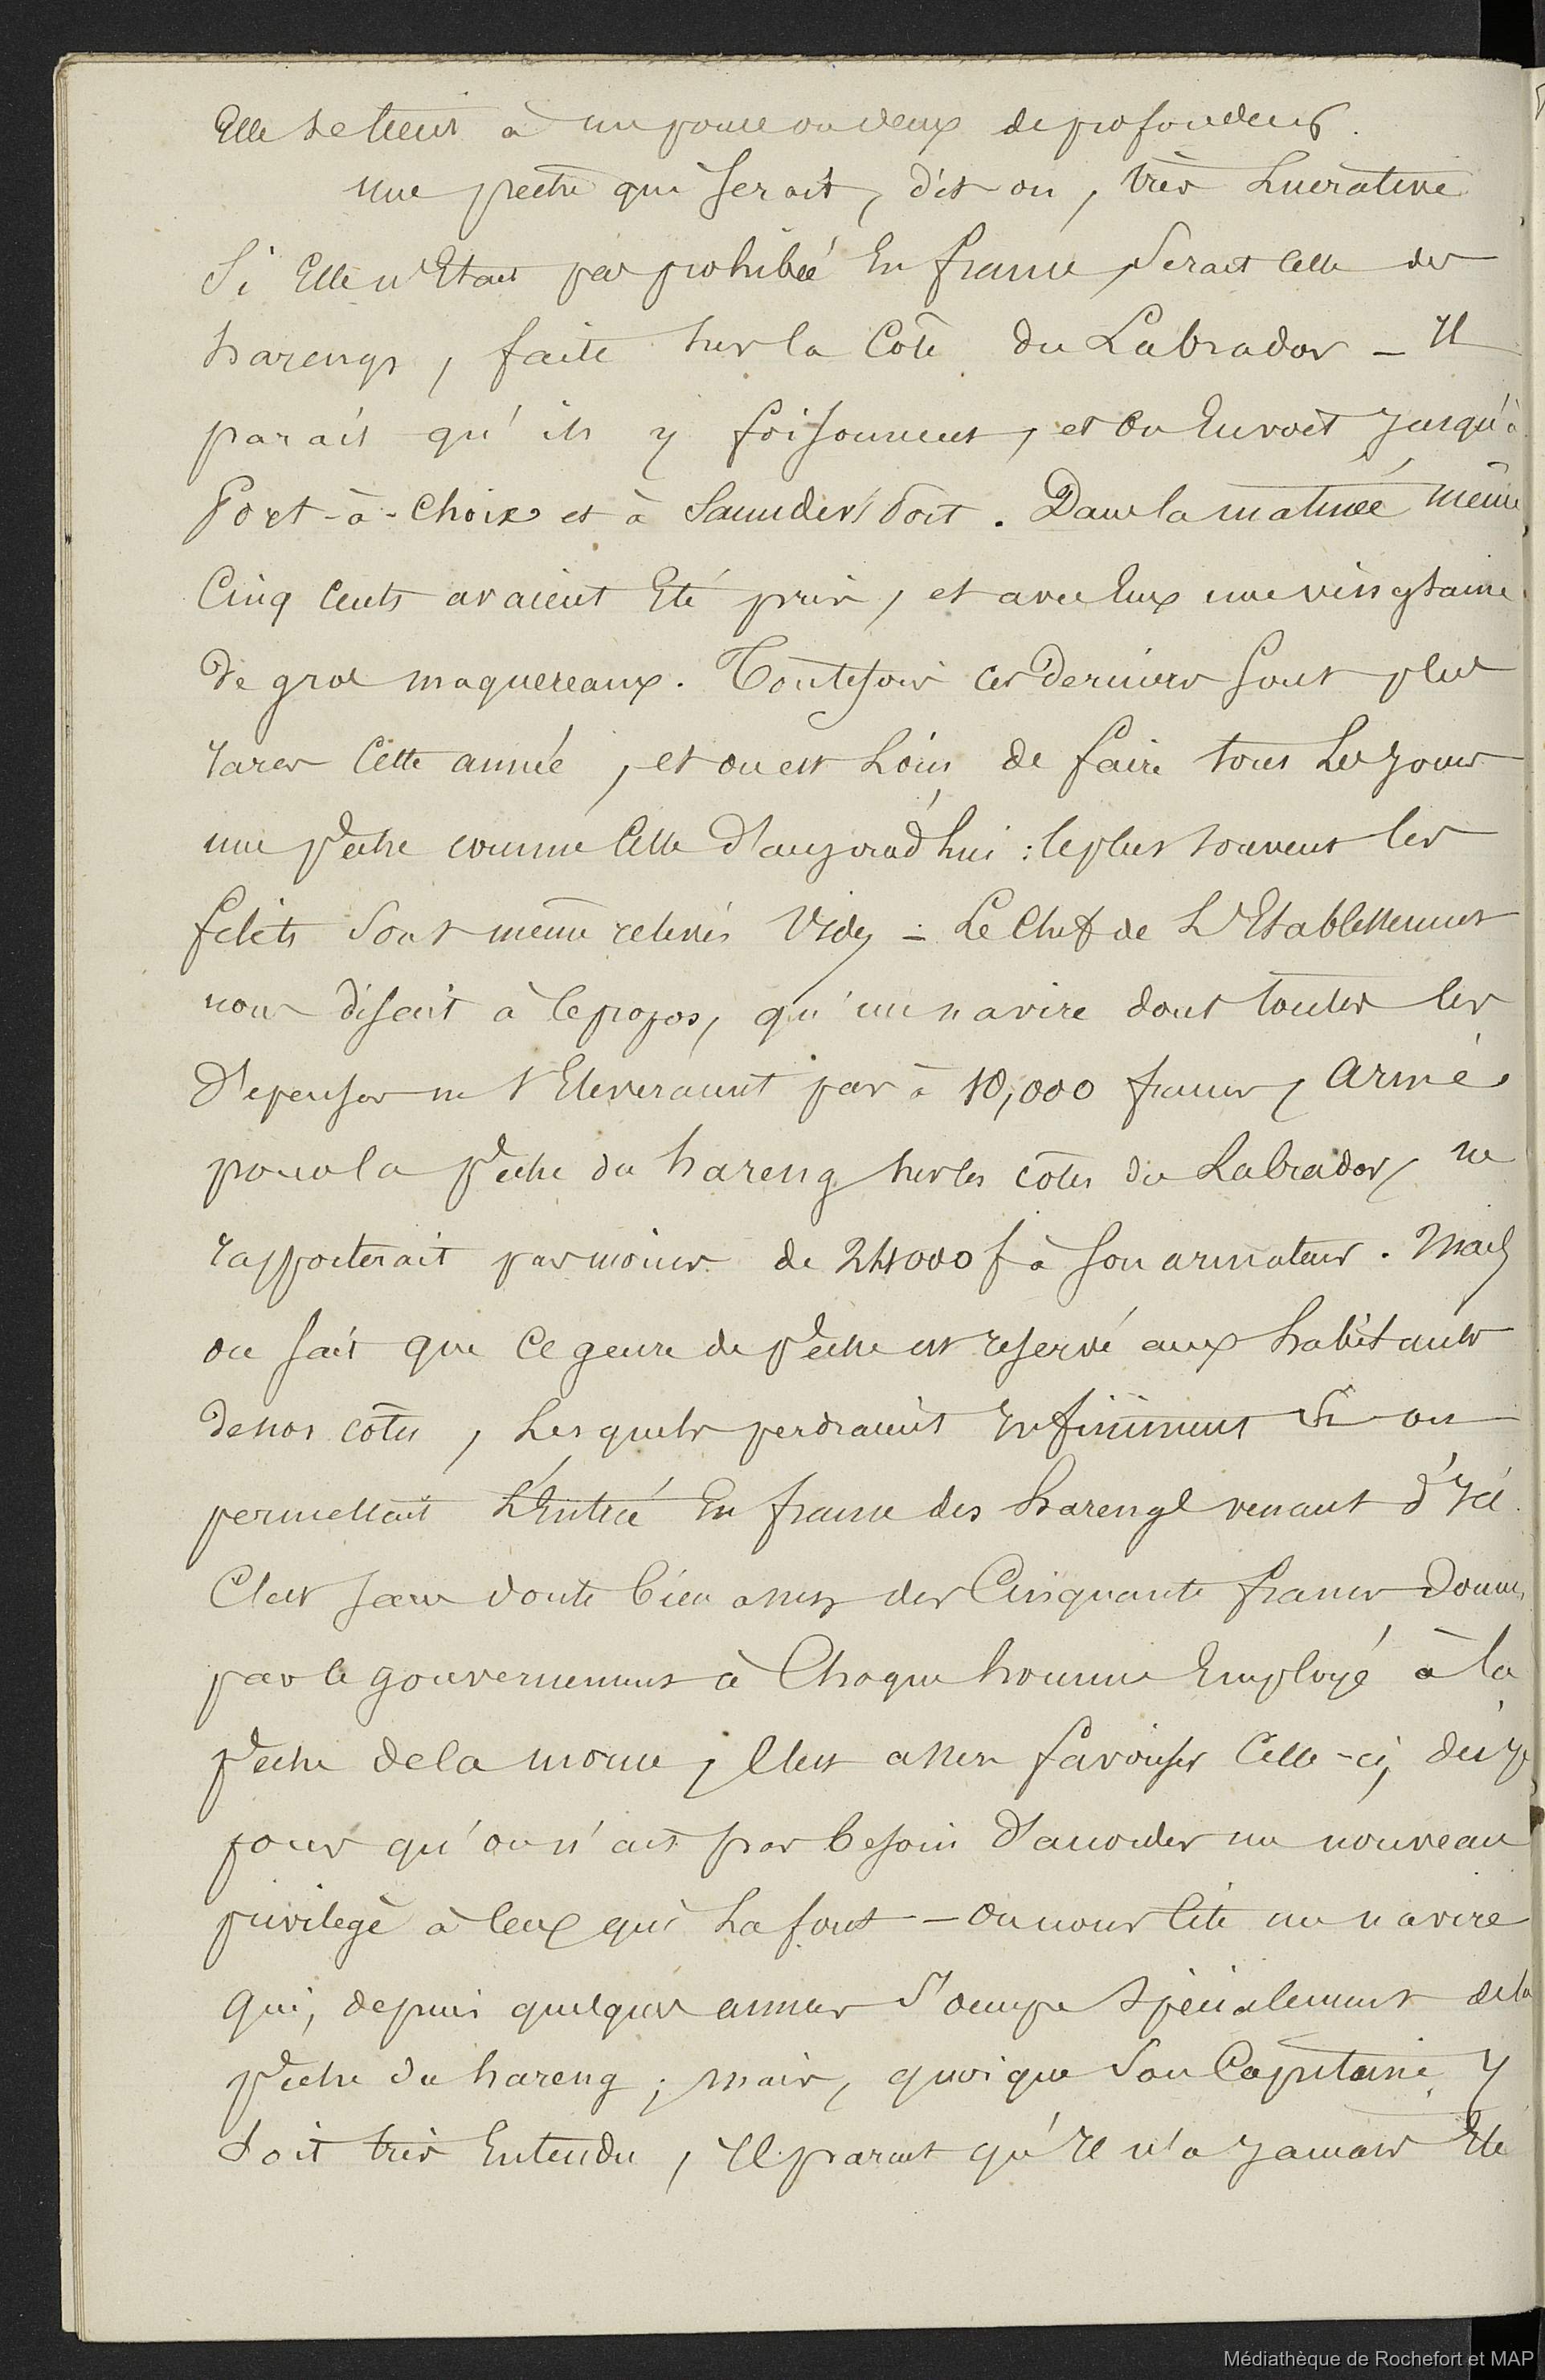 Elle se tient à un pouce ou deux de profondeur.
une peche qui serait, dit-on, très lucrative
Si Elle n'Etait pas prohibée En france, serait celle des
harengs, faite sur la Côte du Labrador _ Il
parait qu'ils y foisonnent, et on En voit jusqu'à
Port-à-Choix et à Saunders' Port. Dans la matinée même
Cinq cents avaient Eté pris, et avec Eux une vingtaine
de gros maquereaux. Toutefois ces derniers sont plus
rares cette année, et on est loin de faire tous les jours
une pêche comme celle d'aujourd'hui : le plus souvent les
filets sont même relevés vides _ Le Chef de l'Etablissement
nous disait à ce propos, qu'un navire dont toutes les
dépenses ne s'Eleveraient pas à 10,000 francs, armé
pour la pêche du hareng sur les côtes du Labrador, ne
rapporterait pas moins de 24000 f à son armateur. Mais
on sait que ce genre de pêche est reservé aux habitants
de nos côtes, lesquels perdraient Infiniment si on
permettait l'Entrée En france des harengs venant d'Ici.
C'est sans doute bien assez des Cinquante francs donnés
par le gouvernement à Chaque homme Employé à la
pêche de la morue, c'est assez favoriser Celle-ci,
pour qu'on n'ait pas besoin d'accorder un nouveau
privilegè à ceux qui la font _ On nous cite un navire
qui, depuis quelques annees s'occupe spécialement de la
pêche du hareng ; mais, quoique son Capitaine y
soit très Entendu, Il parait qu'Il n'a jamais Eté